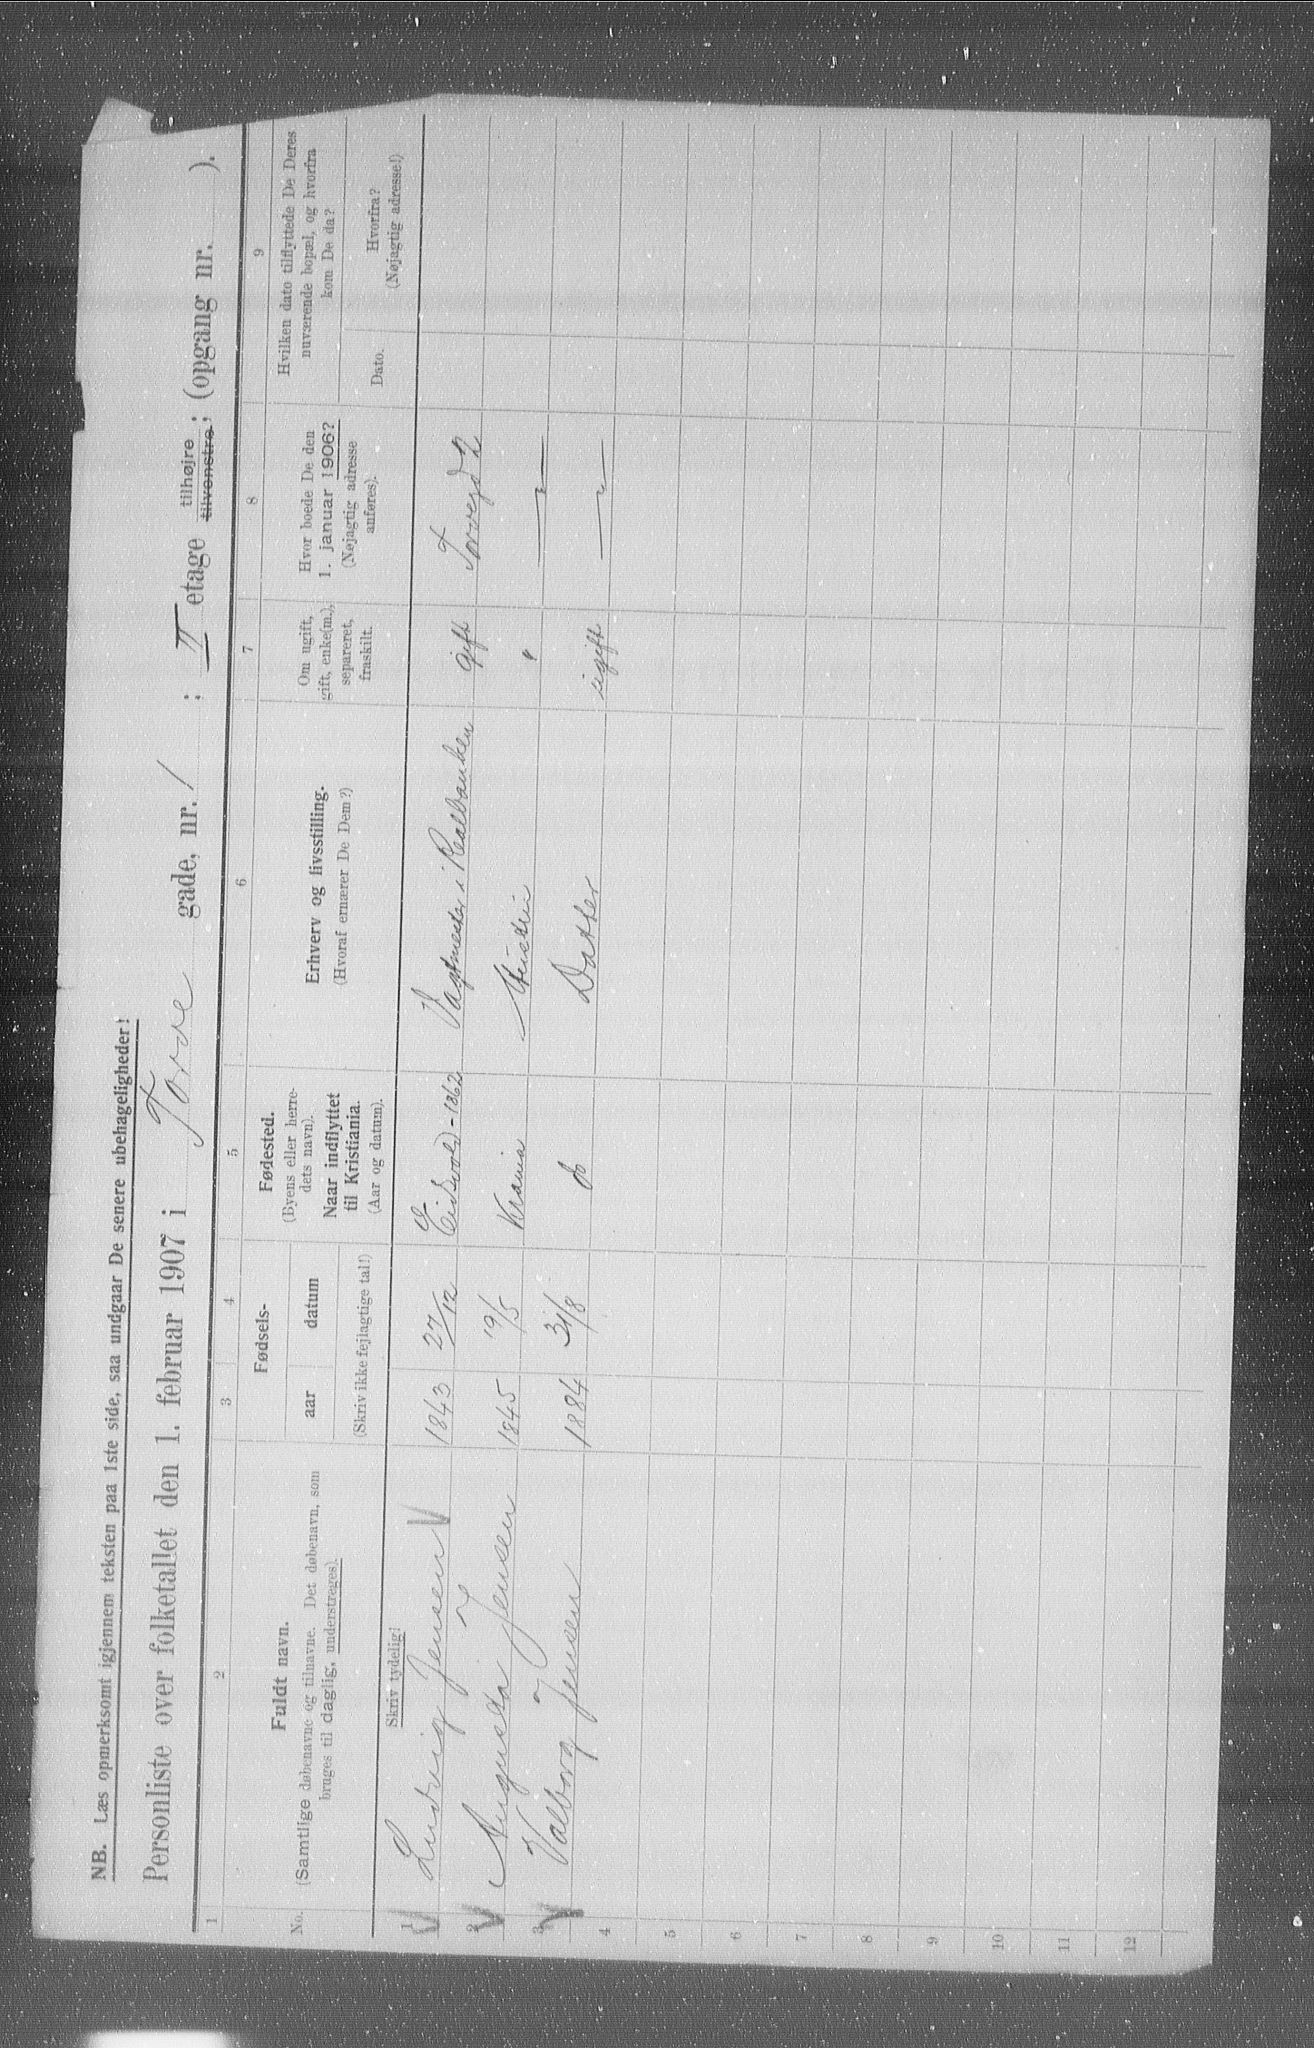 NB. Læs opmerksomt igjennem teksten paa 1ste side, saa undgaar De senere ubehageligheder!
Personliste over folketallet den 1. februar 1907 i Torve gade, nr. 1 ; II etage tilhøjre tilvenstre; (opgang nr. ).
1 2 3 4 5 6 7 8 9
No.
Fuldt navn.
(Samtlige døbenavne og tilnavne. Det døbenavn, som
bruges til daglig, understreges).
Fødsels-
aar datum
(Skriv ikke fejlagtige tal!)
Fødested.
(Byens eller herre-
dets navn).
Naar indflyttet
til Kristiania.
(Aar og datum).
Erhverv og livsstilling.
(Hvoraf ernærer De Dem?)
Om ugift,
gift, enke(m.),
separeret,
fraskilt.
Hvor boede De den
1. januar 1906?
(Nøjagtig adresse
anføres).
Hvilken dato tilflyttede De Deres
nuværende bopæl, og hvorfra
kom De da?
Dato.
Hvorfra?
(Nøjagtig adresse!)
Skriv tydelig!
1 Ludvig Jensen 1843 27/12 Eidsvold - 1862 Vagtmester i Realbanken gift Torvegd 2
2 Augusta Jensen 1845 19/5 Krania Hustru " — " —
3 Valborg Jensen 1884 31/8 do Datter ugift — " —
4
5
6
7
8
9
10
11
12